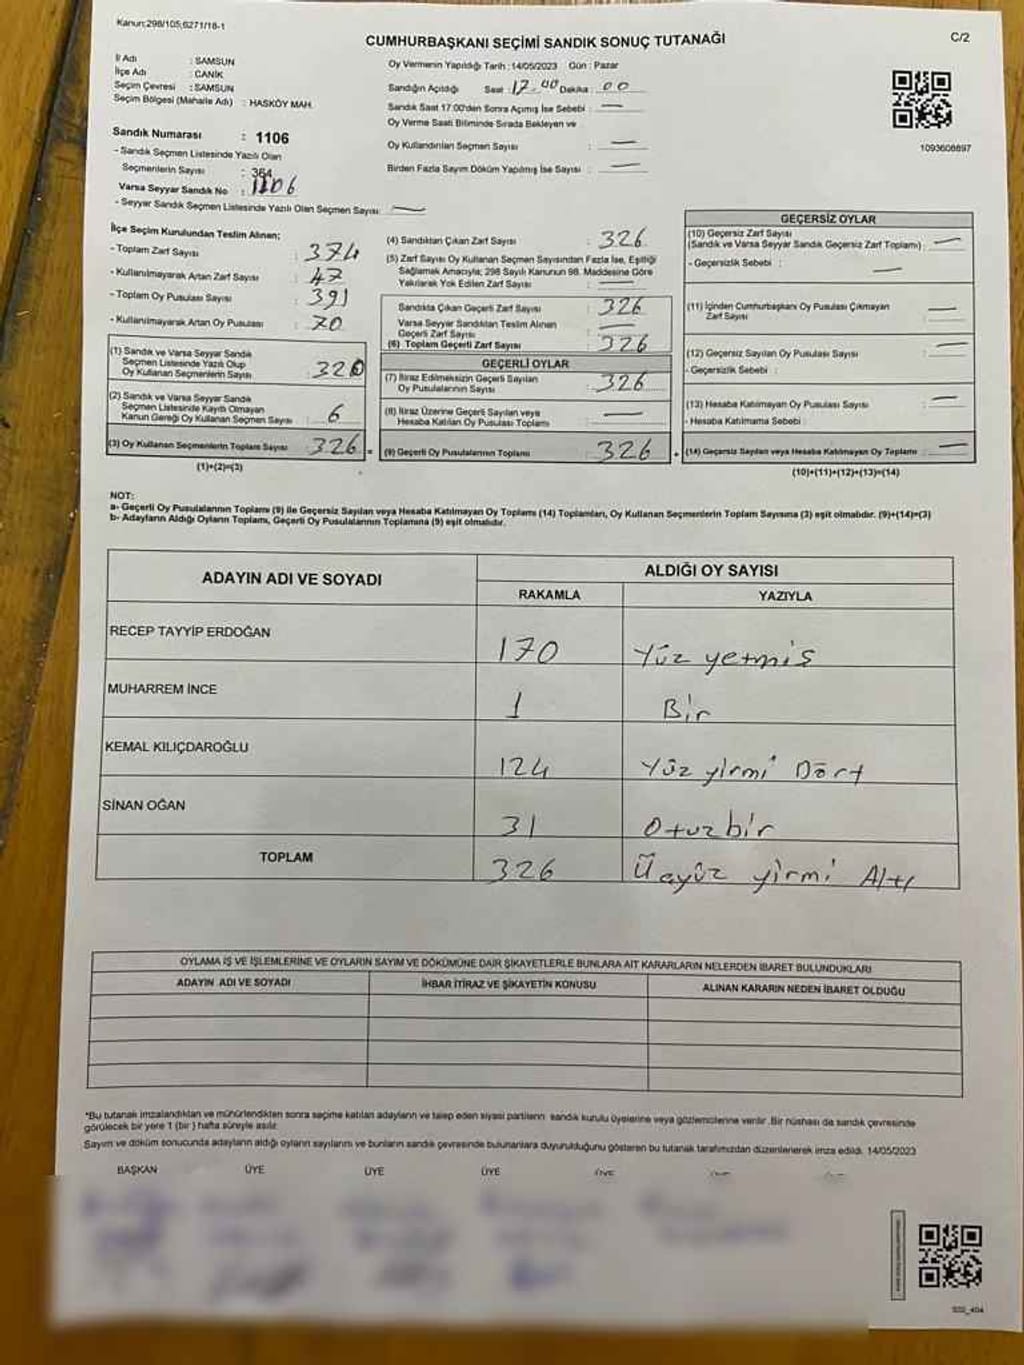 Kanun:298/105,6271/18-1
CUMHURBAŞKANI SEÇİMİ SANDIK SONUÇ TUTANAĞI
C/2
İl Adı : SAMSUN
İlçe Adı : CANİK
Seçim Çevresi : SAMSUN
Seçim Bölgesi (Mahalle Adı) : HASKÖY MAH.
Sandık Numarası : 1106
- Sandık Seçmen Listesinde Yazılı Olan
Seçmenlerin Sayısı : 364
Varsa Seyyar Sandık No : 1106
- Seyyar Sandık Seçmen Listesinde Yazılı Olan Seçmen Sayısı: —
Oy Vermenin Yapıldığı Tarih : 14/05/2023 Gün : Pazar
Sandığın Açıldığı Saat : 17.00 Dakika : 00
Sandık Saat 17:00'den Sonra Açılmış İse Sebebi : —
Oy Verme Saati Bitiminde Sırada Bekleyen ve
Oy Kullandırılan Seçmen Sayısı : —
Birden Fazla Sayım Döküm Yapılmış İse Sayısı : —
1093608897
İlçe Seçim Kurulundan Teslim Alınan;
- Toplam Zarf Sayısı : 374
- Kullanılmayarak Artan Zarf Sayısı : 47
- Toplam Oy Pusulası Sayısı : 391
- Kullanılmayarak Artan Oy Pusulası : 70
(1) Sandık ve Varsa Seyyar Sandık
Seçmen Listesinde Yazılı Olup
Oy Kullanan Seçmenlerin Sayısı : 320
(2) Sandık ve Varsa Seyyar Sandık
Seçmen Listesinde Kayıtlı Olmayan
Kanun Gereği Oy Kullanan Seçmen Sayısı : 6
(3) Oy Kullanan Seçmenlerin Toplam Sayısı : 326
(1)+(2)=(3)
(4) Sandıktan Çıkan Zarf Sayısı : 326
(5) Zarf Sayısı Oy Kullanan Seçmen Sayısından Fazla İse, Eşitliği
Sağlamak Amacıyla; 298 Sayılı Kanunun 98. Maddesine Göre
Yakılarak Yok Edilen Zarf Sayısı : —
Sandıkta Çıkan Geçerli Zarf Sayısı : 326
Varsa Seyyar Sandıktan Teslim Alınan
Geçerli Zarf Sayısı : —
(6) Toplam Geçerli Zarf Sayısı : 326
GEÇERLİ OYLAR
(7) İtiraz Edilmeksizin Geçerli Sayılan
Oy Pusulalarının Sayısı : 326
(8) İtiraz Üzerine Geçerli Sayılan veya
Hesaba Katılan Oy Pusulaları Toplamı : —
(9) Geçerli Oy Pusulalarının Toplamı : 326
GEÇERSİZ OYLAR
(10) Geçersiz Zarf Sayısı
(Sandık ve Varsa Seyyar Sandık Geçersiz Zarf Toplamı) : —
- Geçersizlik Sebebi : —
(11) İçinden Cumhurbaşkanı Oy Pusulası Çıkmayan
Zarf Sayısı : —
(12) Geçersiz Sayılan Oy Pusulası Sayısı : —
- Geçersizlik Sebebi :
(13) Hesaba Katılmayan Oy Pusulası Sayısı : —
- Hesaba Katılmama Sebebi :
(14) Geçersiz Sayılan veya Hesaba Katılmayan Oy Toplamı : —
(10)+(11)+(12)+(13)=(14)
NOT:
a- Geçerli Oy Pusulalarının Toplamı (9) ile Geçersiz Sayılan veya Hesaba Katılmayan Oy Toplamı (14) Toplamları, Oy Kullanan Seçmenlerin Toplam Sayısına (3) eşit olmalıdır. (9)+(14)=(3)
b- Adayların Aldığı Oyların Toplamı, Geçerli Oy Pusulalarının Toplamına (9) eşit olmalıdır.
ADAYIN ADI VE SOYADI
ALDIĞI OY SAYISI
RAKAMLA
YAZIYLA
RECEP TAYYİP ERDOĞAN 170 Yüz yetmiş
MUHARREM İNCE 1 Bir
KEMAL KILIÇDAROĞLU 124 Yüz yirmi Dört
SİNAN OĞAN 31 Otuzbir
TOPLAM 326 Üçyüz yirmi Altı
OYLAMA İŞ VE İŞLEMLERİNE VE OYLARIN SAYIM VE DÖKÜMÜNE DAİR ŞİKAYETLERLE BUNLARA AİT KARARLARIN NELERDEN İBARET BULUNDUKLARI
ADAYIN ADI VE SOYADI
İHBAR İTİRAZ VE ŞİKAYETİN KONUSU
ALINAN KARARIN NEDEN İBARET OLDUĞU
*Bu tutanak imzalandıktan ve mühürlendikten sonra seçime katılan adayların ve talep eden siyasi partilerin sandık kurulu üyelerine veya gözlemcilerine verilir. Bir nüshası da sandık çevresinde
görülecek bir yere 1 (bir) hafta süreyle asılır.
Sayım ve döküm sonucunda adayların aldığı oyların sayılarını ve bunların sandık çevresinde bulunanlara duyurulduğunu gösteren bu tutanak tarafımızdan düzenlenerek imza edildi. 14/05/2023
BAŞKAN ÜYE ÜYE ÜYE